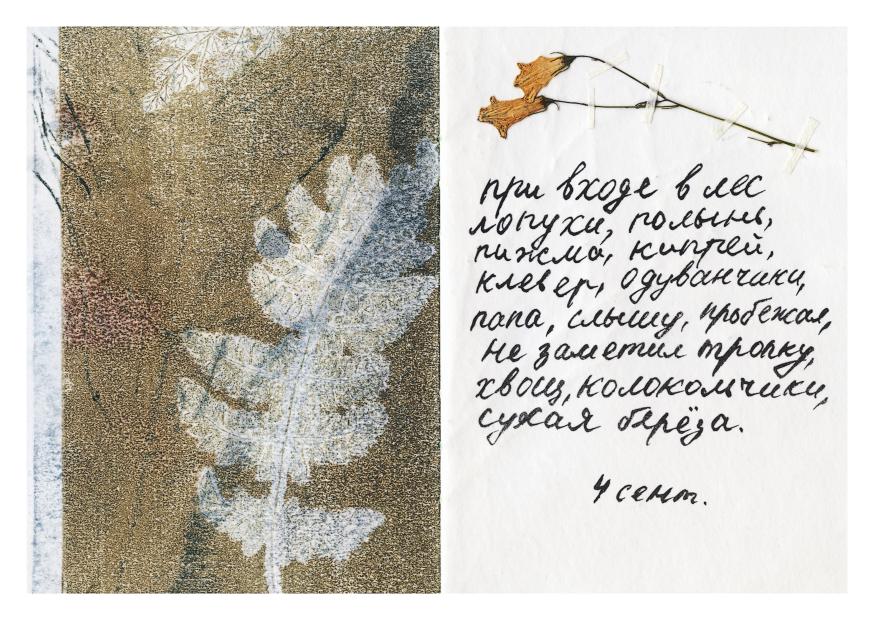 при входе в лес
лопухи, полынь,
пижма, кипрей,
клевер, одуванчики,
папа, слышу, пробежал,
не заметил тропку,
хвощ, колокольчики,
сухая берёза.
4 сент.